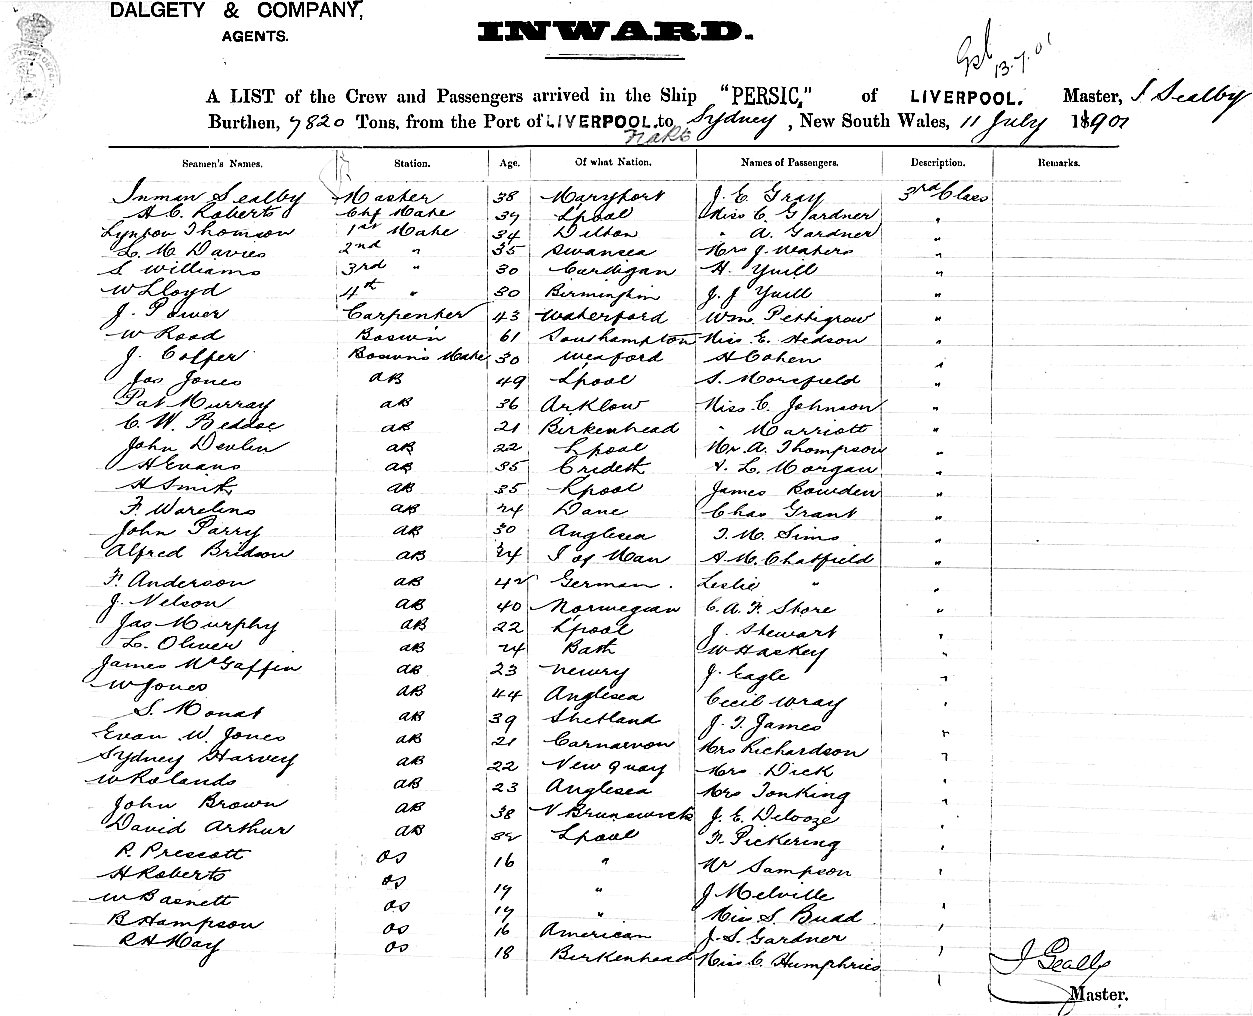 DALGETY & COMPANY,
AGENTS.
INWARD.
13.7.01
A LIST of the Crew and Passengers arrived in the Ship "PERSIC," of LIVERPOOL. Master, I Sealby
Burthen, 7820 Tons, from the Port of LIVERPOOL to Sydney, New South Wales, 11 July 1901
Seamen's Names. Station. Age. Of what Nation. Names of Passengers. Description. Remarks.
Inman Sealby Master 38 Maryport J. E. Gray 3rd Class
H C. Roberts Chf Mate 37 L'pool Miss C. Gardner "
Lynton Thomson 1st Mate 34 Dilton " A. Gardner "
L. M. Davies 2nd " 35 Swansea Mrs J. Waters "
S Williams 3rd " 30 Cardigan H. Yuill "
W Lloyd 4th " 30 Birmingham J. J Yuill "
J. Power Carpenter 43 Waterford Wm. Pettigrow "
W Road Boswn 61 Southampton Miss E. Hedson "
J. Colfer Boswn's Mate 30 Wexford H Cohen "
Jas Jones AB 49 L'pool S. Morsfield "
Pat Murray AB 36 Arklow Miss C. Johnson "
C. W. Beddoe AB 21 Birkenhead " Marriott "
John Devlin AB 22 L'pool Mr A. Thompson "
H Evans AB 35 L. Morgan "
H Smith AB 35 L'pool James Bowden "
F. Warelins AB 24 Dane Chas Grant "
John Parry AB 30 Anglesea T. M. Sims "
Alfred Bridson AB 24 I of Man A. M. Chatfield "
F. Anderson AB 42 German. Leslie " "
J. Nelson AB 40 Norwegian C. A. F. Shore "
Jas Murphy AB 22 L'pool J. Stewart "
L. Oliver AB 24 Bath W Haskey "
James McGaffin AB 23 Newry J. Eagle "
W Jones AB 44 Anglesea Cecil Wray "
S. Mouat AB 39 Shetland J. T. James "
Evan W. Jones AB 21 Carnarvon Mrs Richardson "
Sydney Harvey AB 22 New Quay Mrs Dick "
W Rolands AB 23 Anglesea Mrs Tonking "
John Brown AB 38 N Brunswick J. E. Delooze "
David Arthur AB 32 L'pool F. Pickering "
R. Prescott OS 16 " W Sampson "
H Roberts OS 17 " J Melville "
W Basnett OS 17 " Miss S. Budd "
B Hampson OS 16 American J. S. Gardner "
R H May OS 18 Birkenhead Miss C. Humphries "
I Sealby
Master.